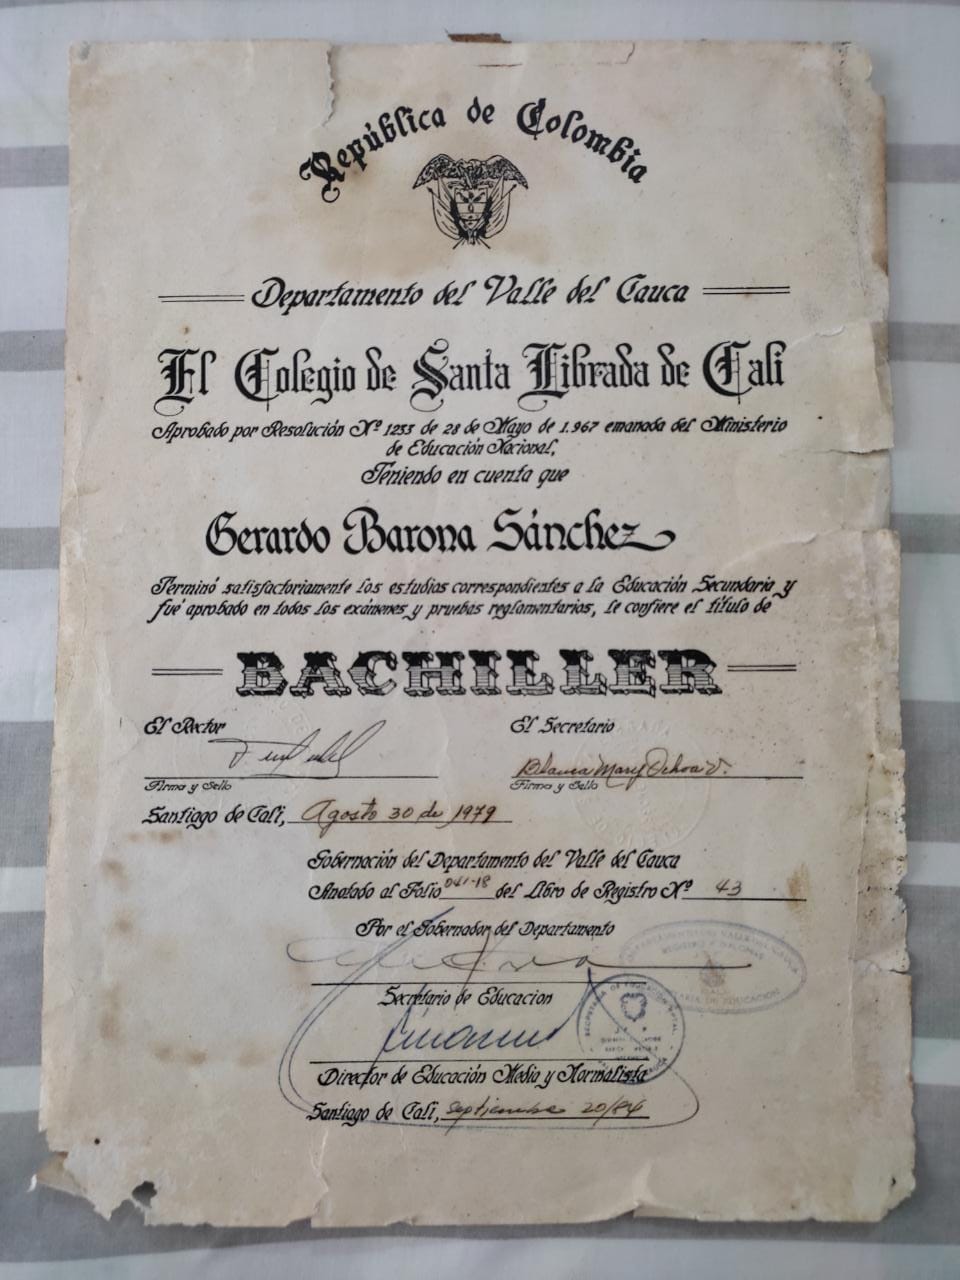 República de Colombia
Departamento del Valle del Cauca
El Colegio de Santa Librada de Cali
Aprobado por Resolución Nº 1233 de 28 de Mayo de 1.967 emanada del Ministerio
de Educación Nacional,
Teniendo en cuenta que
Gerardo Barona Sánchez
Terminó satisfactoriamente los estudios correspondientes a la Educación Secundaria y
fué aprobado en todos los exámenes y pruebas reglamentarios, le confiere el título de
BACHILLER
El Rector
El Secretario
Blanca Mary Ochoa V.
Firma y Sello
Firma y Sello
Santiago de Cali, Agosto 30 de 1979
Gobernación del Departamento del Valle del Cauca
Anotado al Folio 041-18 del Libro de Registro Nº 43
Por el Gobernador del Departamento
Secretario de Educacion
Director de Educación Media y Normalista
Santiago de Cali, Septiembre 20/84